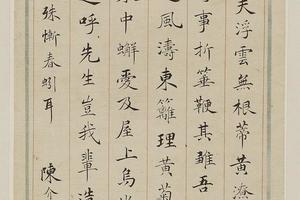 夫浮雲無根蒂黃潦
事折箠鞭其雖吾
風濤東籬理黃菊
中蠏愛及屋上烏
呼先生豈我輩造
殊慚春蚓耳
陳介